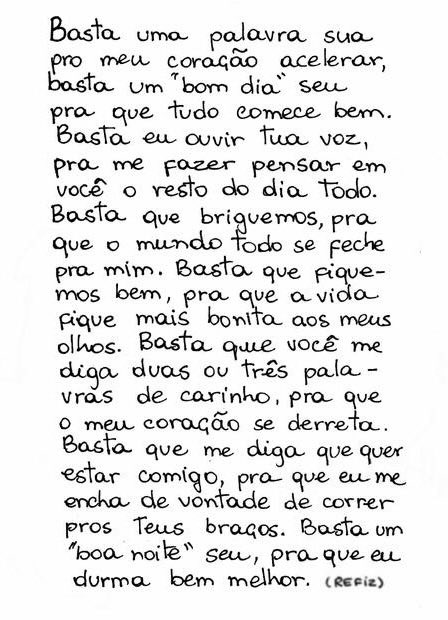 Basta uma palavra sua
pro meu coração acelerar,
basta um "bom dia" seu
pra que tudo comece bem.
Basta eu ouvir tua voz,
pra me fazer pensar em
você o resto do dia todo.
Basta que briguemos, pra
que o mundo todo se feche
pra mim. Basta que fique-
mos bem, pra que a vida
fique mais bonita aos meus
olhos. Basta que você me
diga duas ou três pala-
vras de carinho, pra que
o meu coração se derreta.
Basta que me diga que quer
estar comigo, pra que eu me
encha de vontade de correr
pros teus braços. Basta um
"boa noite" seu, pra que eu
durma bem melhor. (REFIZ)